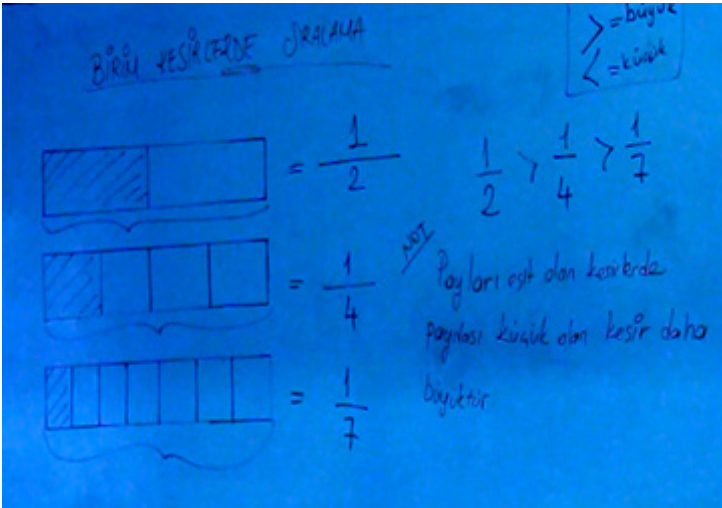 BİRİM KESİRLERDE SIRALAMA
> = büyük
< = küçük
= 1/2
1/2 > 1/4 > 1/7
= 1/4
NOT
Payları eşit olan kesirlerde
paydası küçük olan kesir daha
büyüktür
= 1/7